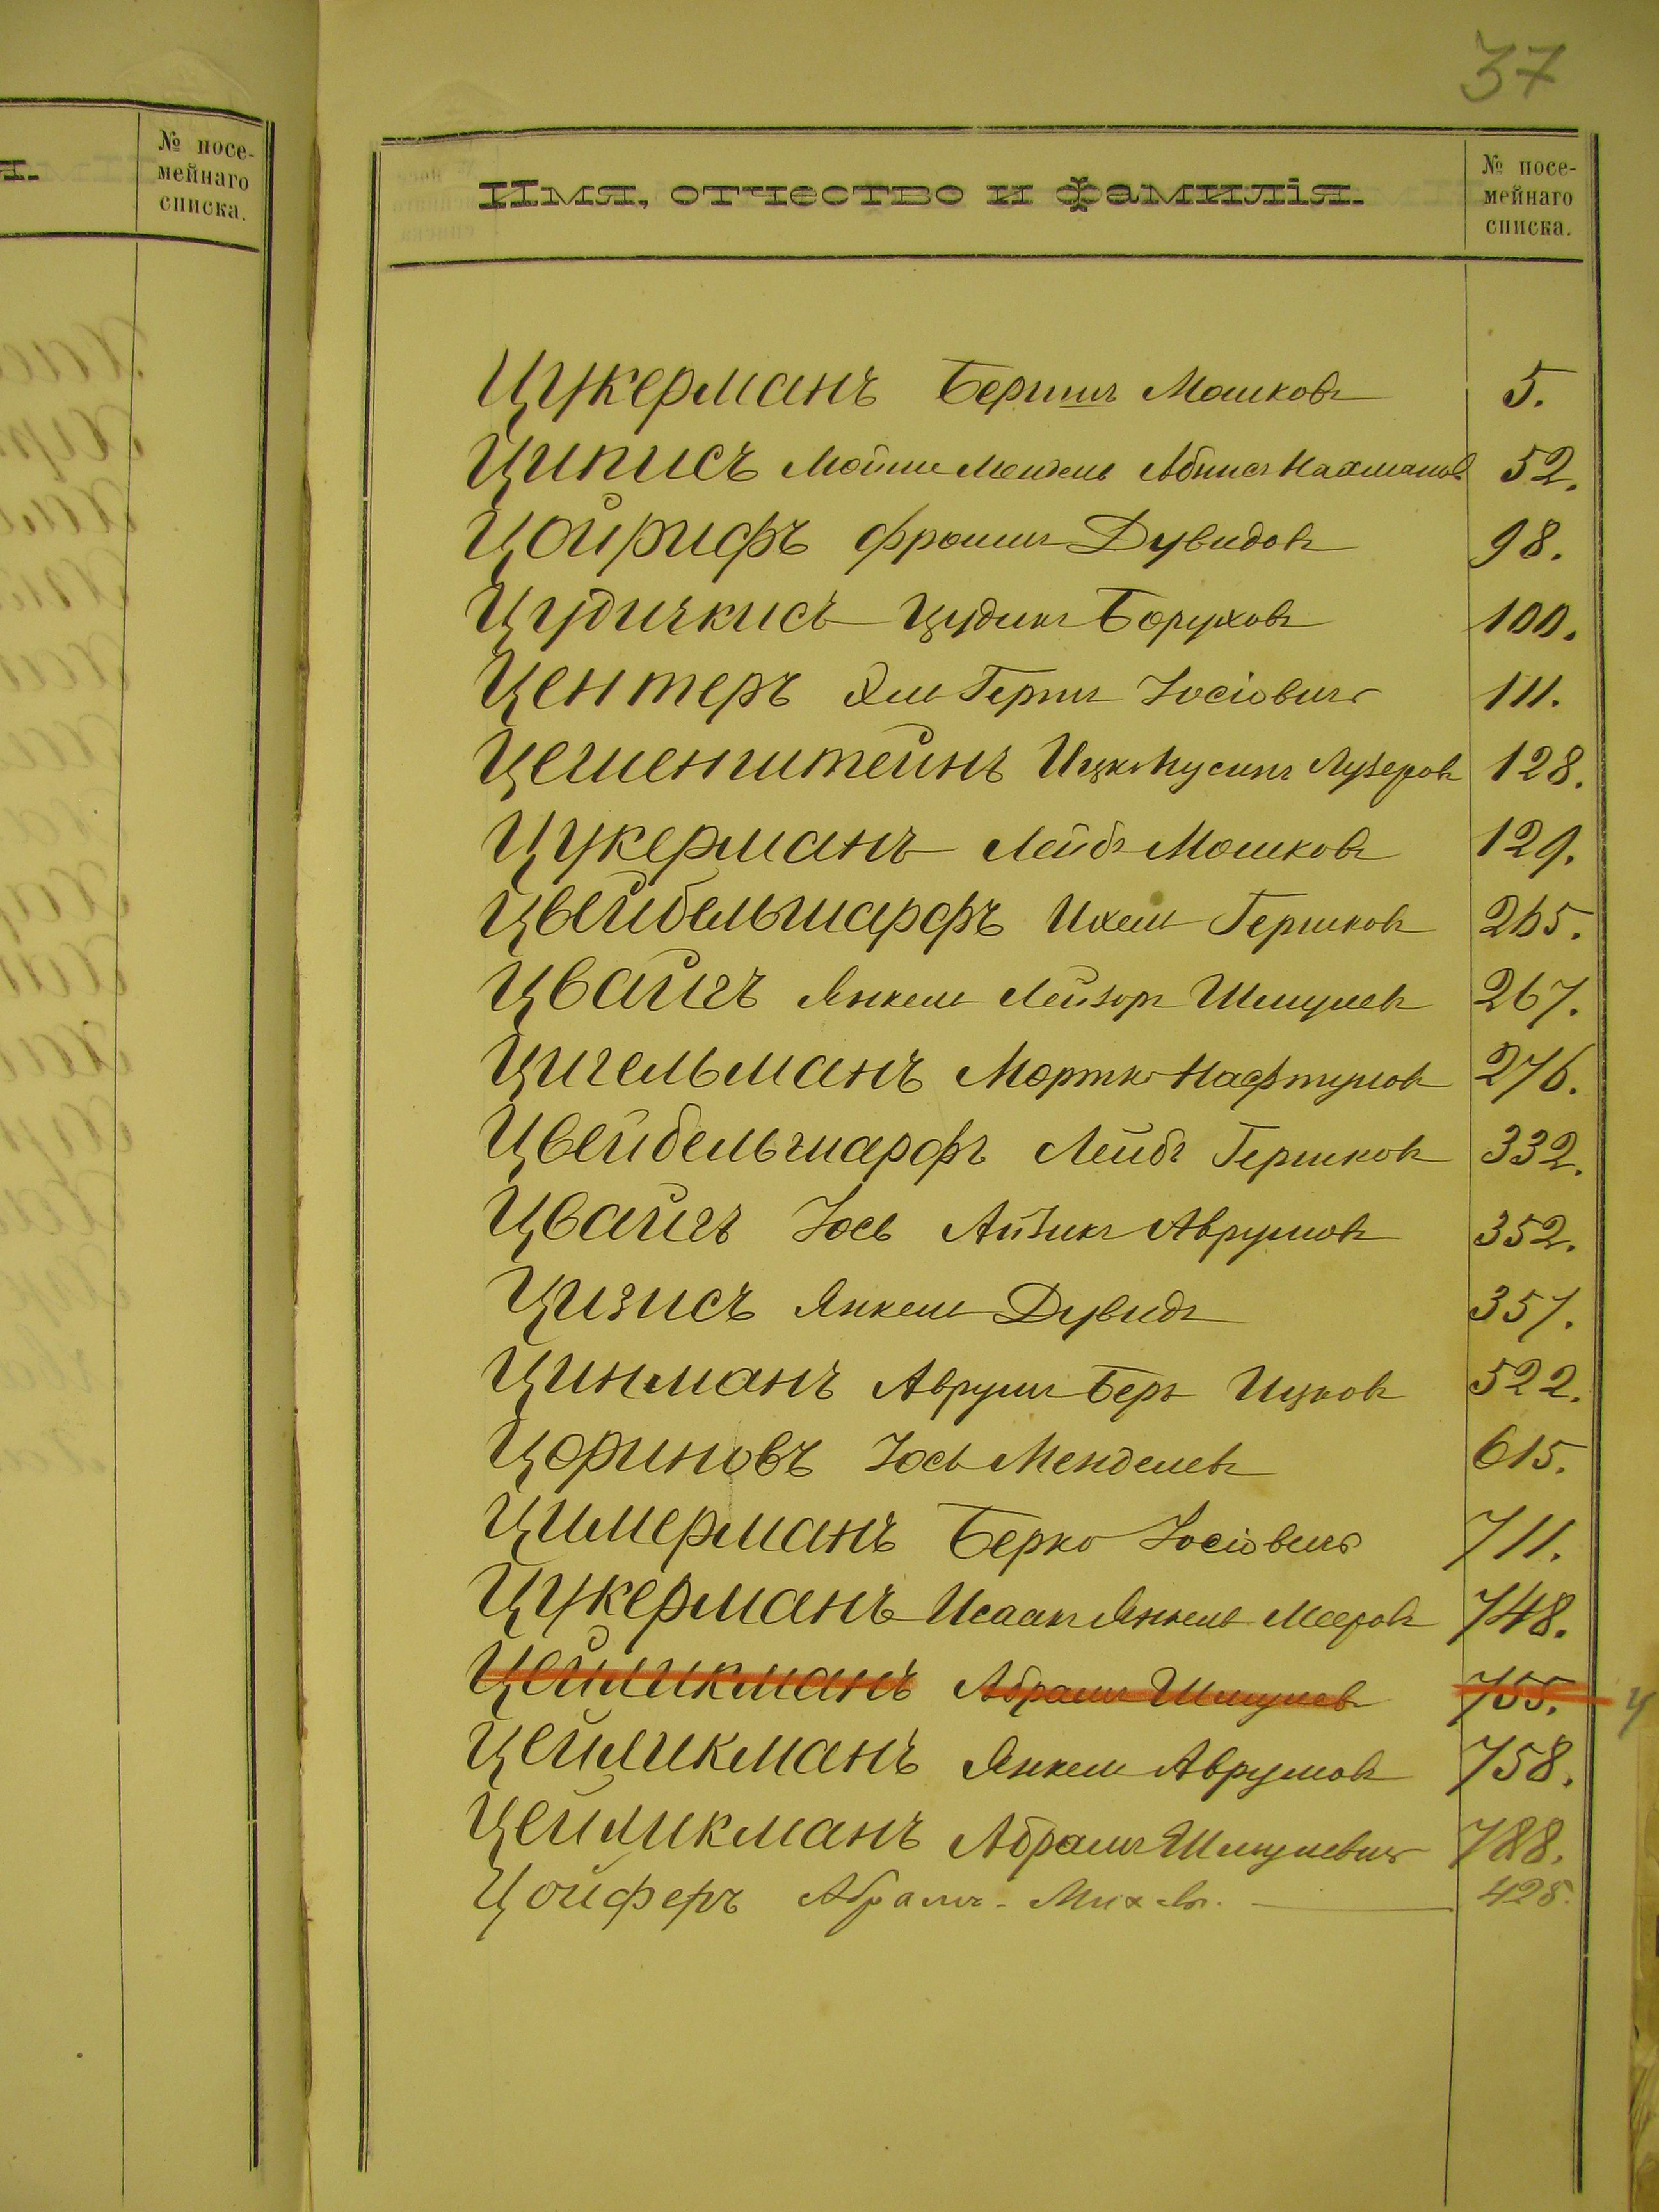 37
№ посе-
мейнаго
списка.
Имя, отчество и фамилія.
№ посе-
мейнаго
списка.
Цукерманъ Бершъ Мошковъ 5.
Циписъ Мойше Мендель Нахмановъ 52.
Цойрифъ Фроимъ Дувидовъ 98.
Цудичкисъ Цудикъ Боруховъ 100.
Центеръ Эль Гершъ Іосіовичъ 111.
Цешенштейнъ Ицко Нусинъ Лузеровъ 128.
Цукерманъ Лейбъ Мошковъ 129.
Цвейбельшарфъ Ихель Гершковъ 265.
Цвайгъ Янкель Лейзоръ Шмулевъ 267.
Цигельманъ Мортко Нафтуловъ 276.
Цвейбельшарфъ Лейбъ Гершковъ 332.
Цвайгъ Іось Айзикъ Аврумовъ 352.
Цизисъ Янкель Дувидъ 357.
Цинманъ Аврумъ Беръ Ицковъ 522.
Цориновъ Іось Менделевъ 615.
Цимерманъ Берко Іосіовичъ 711.
Цукерманъ Исаакъ Янкель Мееровъ 748.
Цейликманъ Абрамъ Шмулевъ 755.
Цейликманъ Янкель Аврумовъ 758.
Цейликманъ Абрамъ Шмулевичъ 788.
Цойферъ Абрамъ - Мих 428.